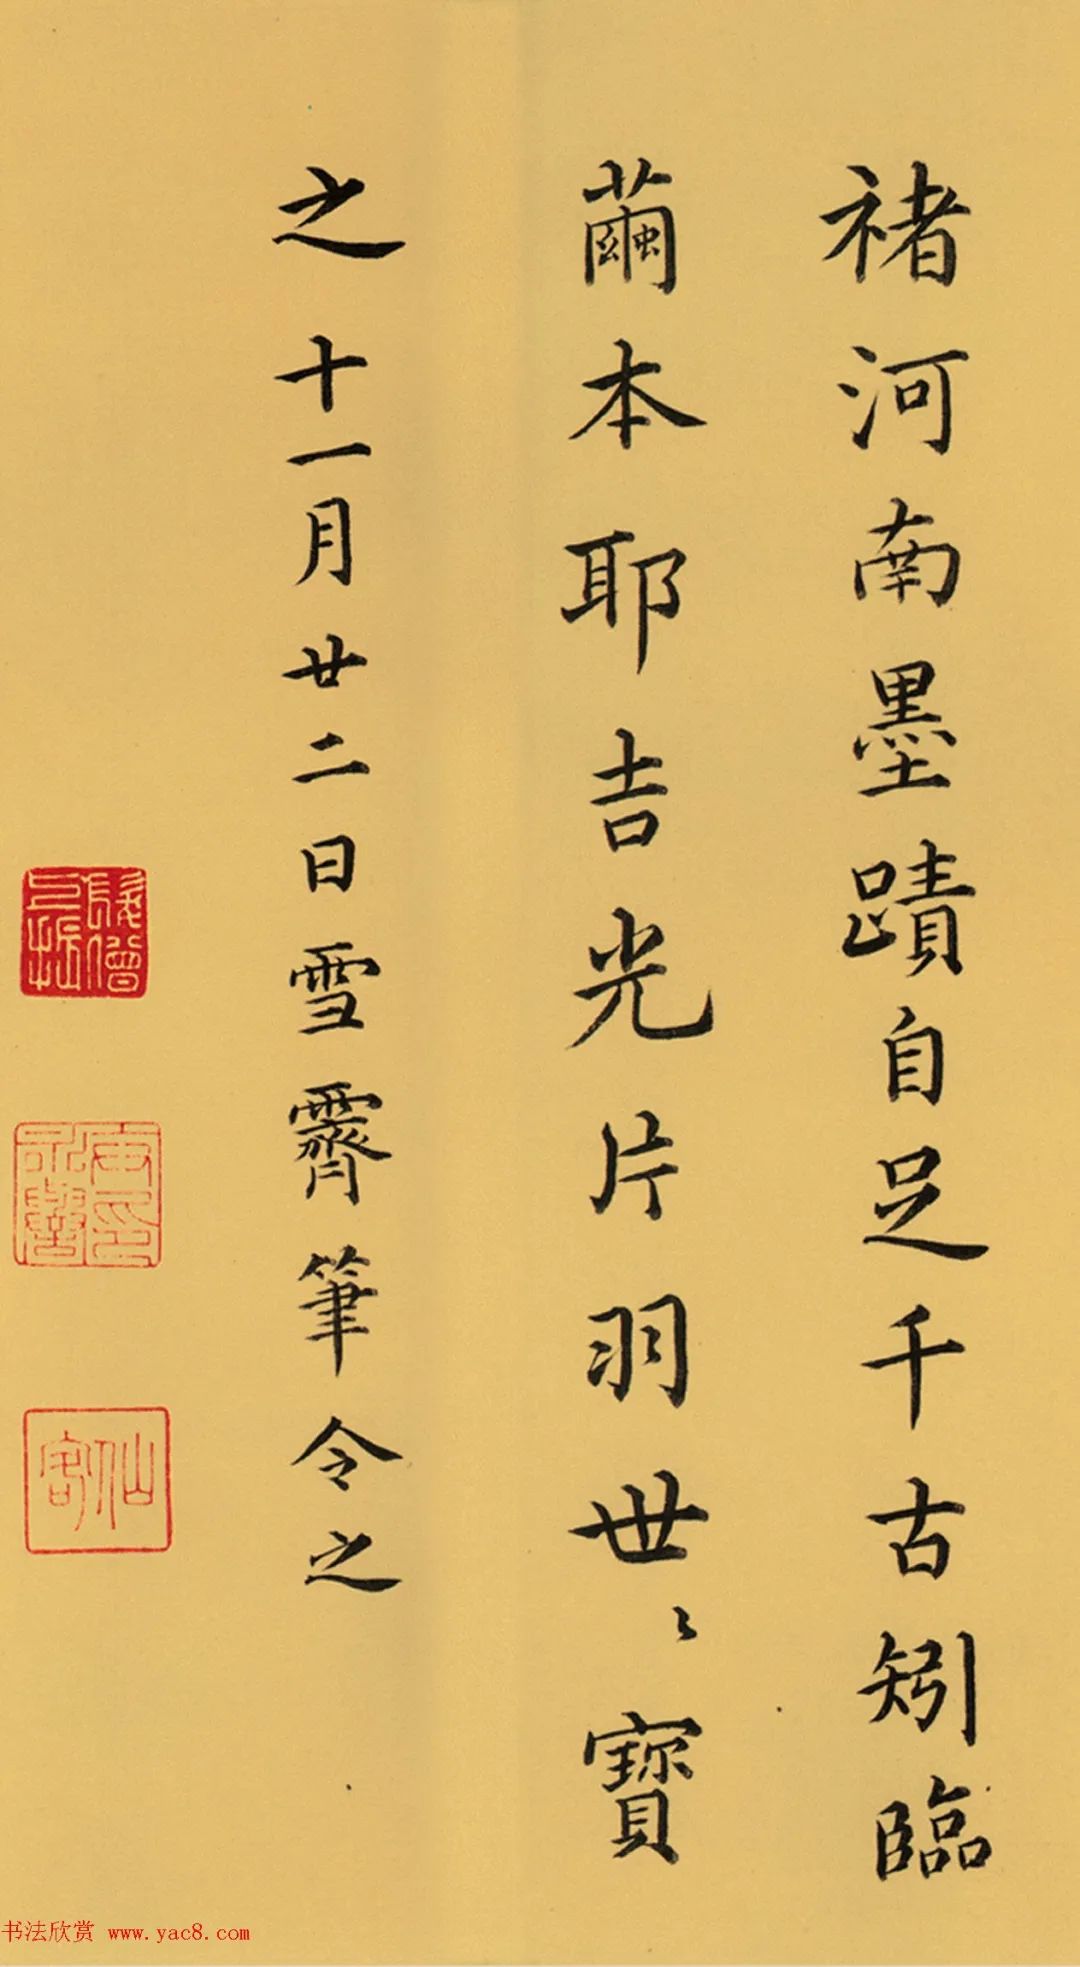 褚河南墨蹟自足千古矧臨
繭本耶吉光片羽世〻寶
之十一月廿二日雪霽筆令之
仙客
书法欣赏 www.yac8.com